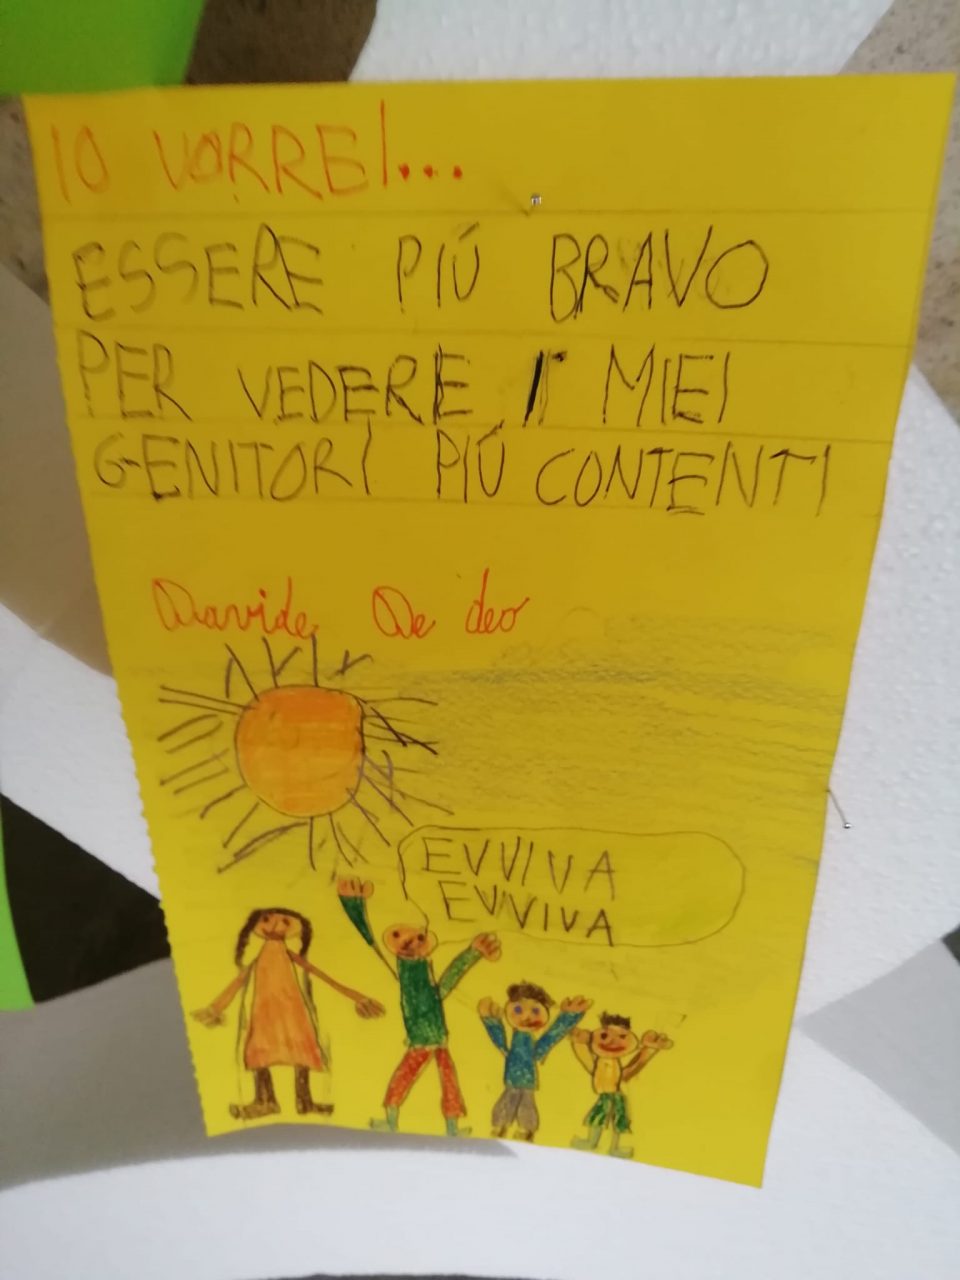 IO VORREI...
ESSERE PIÚ BRAVO
PER VEDERE I MIEI
GENITORI PIÚ CONTENTI
Davide De deo
EVVIVA
EVVIVA